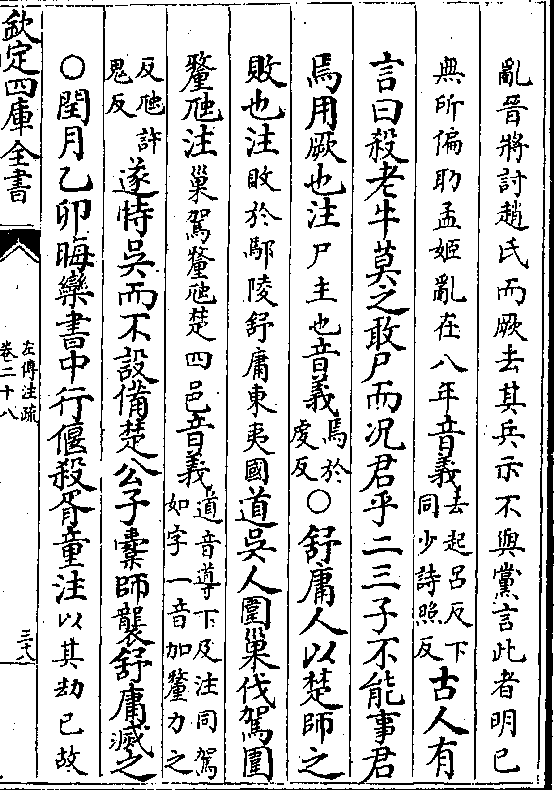 亂晉將討趙氏而厥去其兵示不與黨言此者明已
無所偏助孟姬亂在八年音義去起呂反下同少詩照反古人有
言曰殺老牛莫之敢尸而况君乎二三子不能事君
焉用厥也注尸主也音義焉於䖍反○舒庸人以楚師之
敗也注敗於鄢陵舒庸東夷國道吳人圍巢伐駕圍
釐虺注巢駕釐虺楚四邑音義道音導下及注同駕如字一音加釐力之
反虺許鬼反遂恃吳而不設備楚公子櫜師襲舒庸滅之
○閏月乙卯晦欒書中行偃殺胥童注以其劫已故
欽定四庫全書
左傳注疏
卷二十八
三十八